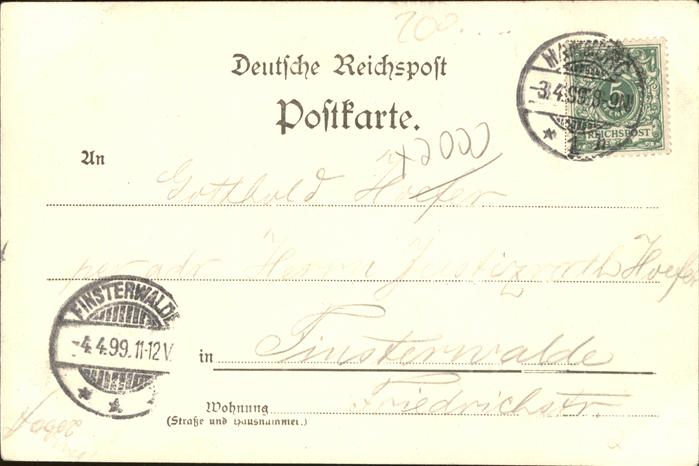 200....
Deutsche Reichspost
Postkarte.
HAMBURG
-3.4.99.8-9N
* 1 n
5
REICHSPOST
x2000
An
Gotthold Hoefer
per adr Herrn Justizrath Hoefer
FINSTERWALDE
-4.4.99.11-12V.
in Finsterwalde
Wohnung Friedrichstr.
(Straße und Hausnummer.)